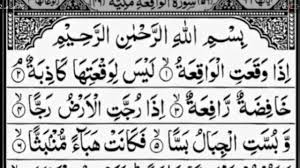 سُوْرَةُ الْوَاقِعَةِ مَكِّيَّةٌ
بِسْمِ اللّٰهِ الرَّحْمٰنِ الرَّحِيْمِ
اِذَا وَقَعَتِ الْوَاقِعَةُ ۝١ لَيْسَ لِوَقْعَتِهَا كَاذِبَةٌ ۝٢
خَافِضَةٌ رَّافِعَةٌ ۝٣ اِذَا رُجَّتِ الْاَرْضُ رَجًّا ۝٤
وَّ بُسَّتِ الْجِبَالُ بَسًّا ۝٥ فَكَانَتْ هَبَآءً مُّنْۢبَثًّا ۝٦